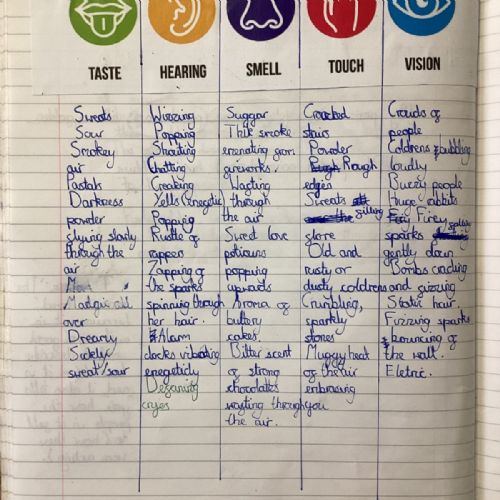 TASTE HEARING SMELL TOUCH VISION
Sweats
Sour
Smokey
air
Pastals
Darkness
powder
slying slowly
through the
air
Madgic all
over
Dreamy
Sickly
sweat/sour
Wizzing
Popping
Shouting
Chatting
Creaking
Yells (enegetic)
Popping
Rustle of
rappers
Zapping of
the sparks
spinning through
her hair.
Alarm
clocks vibrating
enegeticly
Desanity
cryes
Suggar
Thik smoke
emenating from
fireworks.
Wasting
through
the air
Sweet love
potiouns
popping
upwards
Aroma of
buttery
cakes.
Bitter scent
of strong
chocolates
wasting through
the air.
Cracked
stairs
Powder
Rough
edges
Sweats
stone
Old and
rusty or
dusty coldrens
Crumbling,
sparkly
stones
Muggy heat
of the air
embrasing
you
Crouds of
people
Coldrens bubbling
loudly
Buzzy people
Huge rabbits
Firey
sparks
gently down
Bombs cracking
and fizzing
Static hair.
Fizzing sparks
bouncing of
the wall.
Eletric.